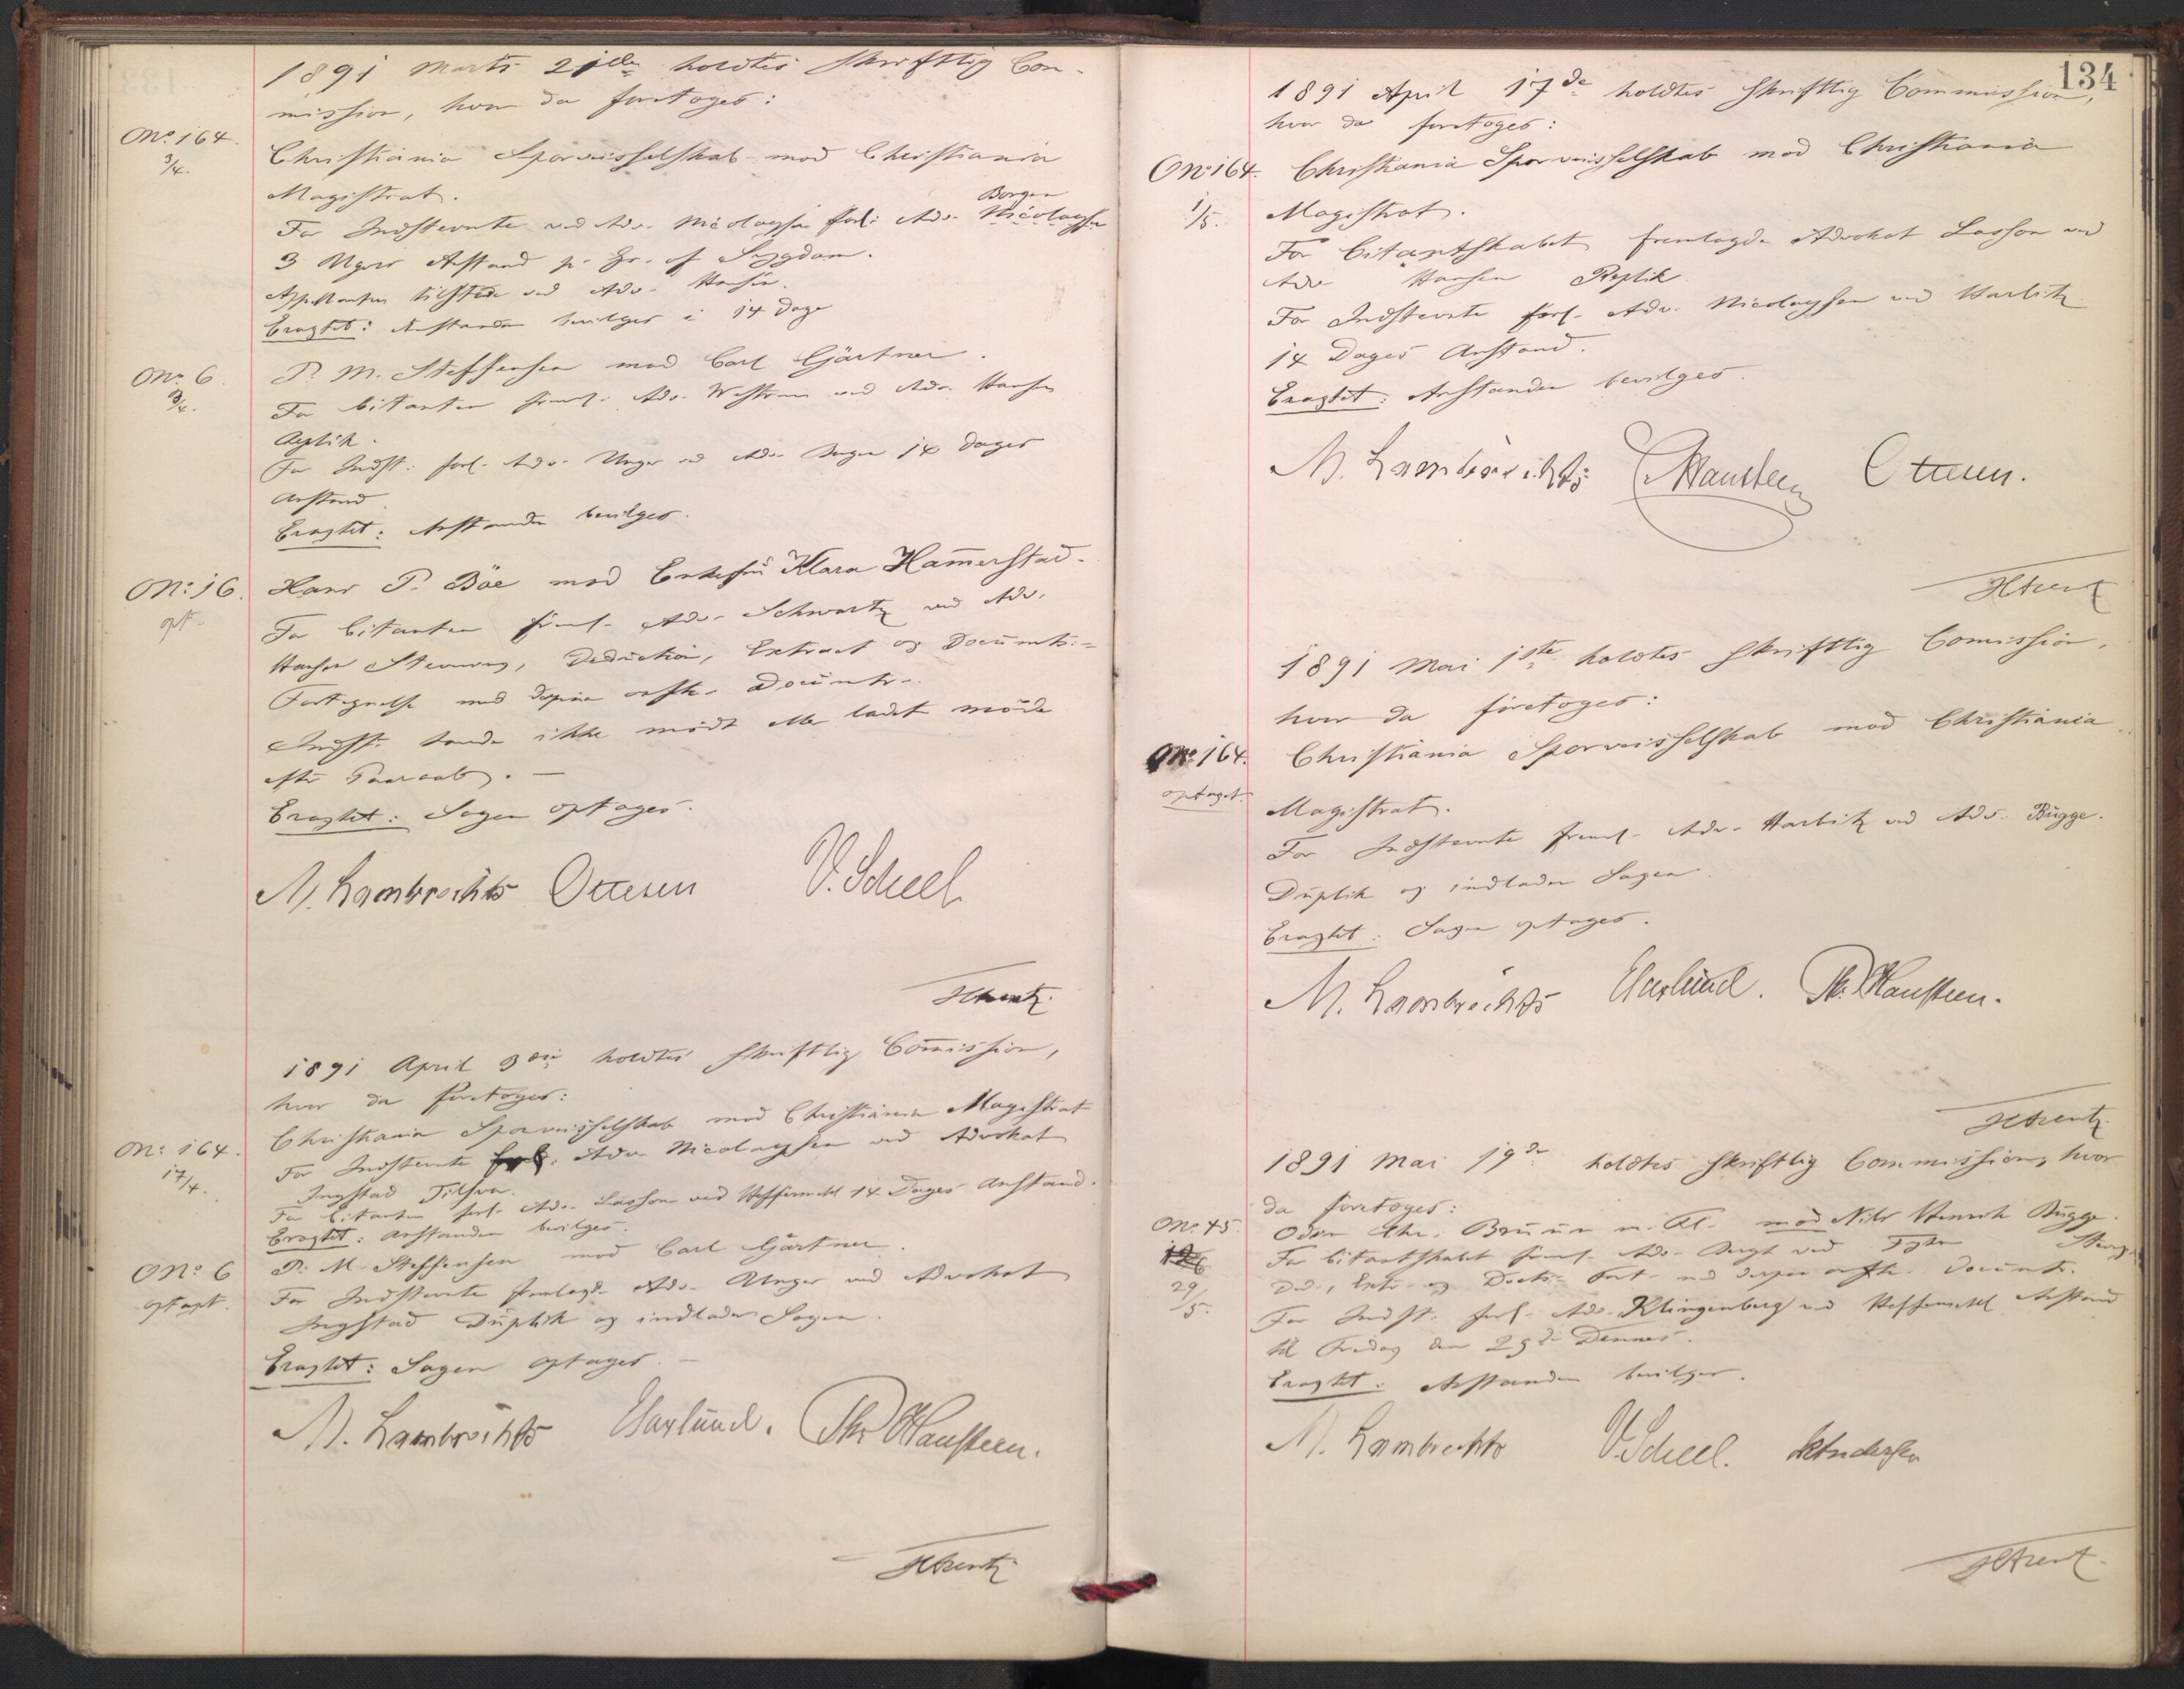 1891 Marts 21de holdtes skriftlig Com-
mission, hvor da foretoges:
No. 164.
3/4.
Christiania Sporveisselskab mod Christiania
Magistrat.
For Indstevnte ved Adv. Nicolaysen forl. Adv. Borgen Nicolaysen
3 Ugers Anstand p. Gr. af Sygdom.
Appellanten tilstede ved Adv. Hansen.
Eragtet: Anstanden bevilges i 14 Dage
No. 6.
3/4.
P. M. Steffensen mod Carl Gärtner.
For Citanten freml. Adv. ved Adv. Hansen
Replik.
For Indst: forl. Adv. Unger ved Adv. 14 Dages
Anstand
Eragtet: Anstanden bevilges.
No: 16.
opt.
Hans P. Bäe mod Enkefru Klara Ham̄erstad.
For Citanten freml. Adv. Schwartz ved Adv.
Hansen Stevning, Deduction, Extract og Documents:-
Fortegnelse med Documtr.
Indst. havde ikke mödt eller ladet möde
efter Paaraab. —
Eragtet: Sagen optages.
M. Lambrechts Ottesen V. Scheel
1891 April 3die holdtes skriftlig Com̄ission,
hvor da foretoges:
No: 164.
17/4.
Christiania Sporveisselskab mod Christiania Magistrat
For Indstevnte forl: Adv. Nicolaysen ved Advokat
Ingstad Tilsvar.
For Citanten forl. Adv. Lasson ved 14 Dages Anstand.
Eragtet: Anstanden bevilges.
No. 6
optagt.
P. M. Steffensen mod Carl Gärtner.
For Indstevnte fremlagde Adv. Unger ved Advokat
Ingstad Duplik og indlader Sagen.
Eragtet: Sagen optages. —
M. Lambrechts Th. Hansteen.
134
1891 April 17de holdtes skriftlig Commission,
hvor da foretoges:
No. 164.
1/5.
Christiania Sporveisselskab mod Christiania
Magistrat.
For Citantskabet fremlagde Advokat Lasson ved
Adv Hansen Replik
For Indstevnte forl. Adv. Nicolaysen ved Harbitz
14 Dages Anstand.
Eragtet: Anstanden bevilges.
M. Lambrechts Hansteen Ottesen.
1891 Mai 1ste holdtes skriftlig Comission,
hvor da foretoges:
No: 164.
optaget.
Christiania Sporveisselskab mod Christiania
Magistrat.
For Indstevnte freml. Adv. Harbitz ved Adv. Bugge.
Duplik og indlader Sagen.
Eragtet: Sagen optages.
M. Lambrechts Th. Hansteen.
1891 Mai 19de holdtes skriftlig Commission, hvor
da foretoges:
No. 45.
29/5.
Oden Chr. Bruun m. Fl. mod Nils Henrik Bugge.
For Citantskabet freml. Adv. ved Stevng.
Ded., Extr. og Docts. Fort. med Documtr.
For Indst. forl. Adv. Klingenberg ved Anstand
til Fredag den 29de Dennes.
Eragtet: Anstanden bevilges.
M. Lambrechts V. Scheel. Andersen